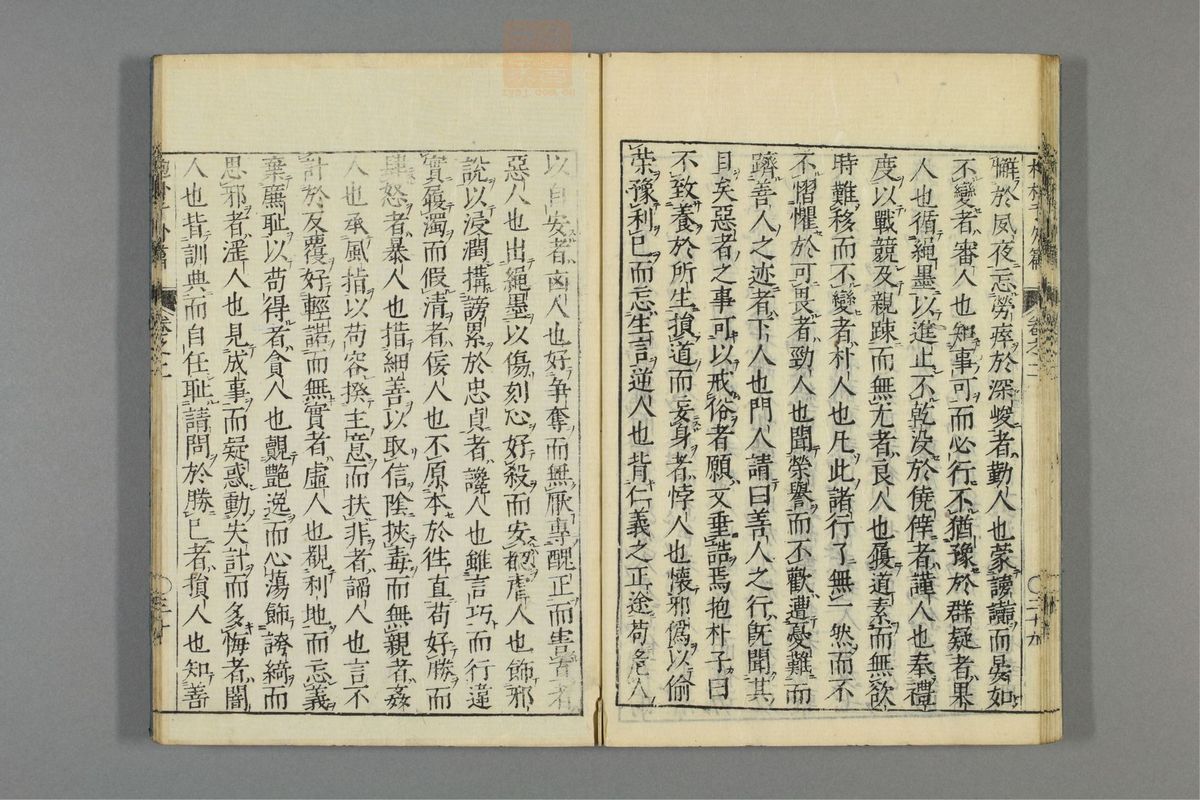 懈於夙夜忘勞瘁於深峻者勤人也蒙謗讟而晏如
不變者審人也知事可而必行不猶豫於群疑者果
人也循繩墨以進止不乾沒於僥倖者謹人也奉禮
度以戰競及親踈而無尤者良人也履道素而無欲
時難移而不變者朴人也凡此諸行了無一然而不
不慴懼於可畏者勁人也聞榮譽而不歡遭憂難而
躋善人之迹者下人也門人請曰善人之行旣聞其
目矣惡者之事可以戒俗者願文垂誥焉抱朴子曰
不致養於所生損道而妄身者悖人也懷邪僞以偷
榮豫利己而忘生言逆人也背仁義之正途苟危人
以自安者凶人也好爭奪而無厭專醜正而害者
惡人也出繩墨以傷刻心好殺而安人也飾邪
說以浸潤搆謗累於忠貞者讒人也雖言巧而行違
實履濁而假清者佞人也不原本於徃直苟好勝而
肆怒者暴人也措細善以取信陰挾毒而無親者姦
人也承風指以苟容揆主意而扶非者諂人也言不
計於反覆好輕諾而無實者虛人也覩利地而忘義
棄廉恥以苟得者貪人也覿艷逸而心蕩飾誇綺而
思邪者淫人也見成事而疑惑動失計而多悔者闇
人也背訓典而自任恥請問於勝己者損人也知善